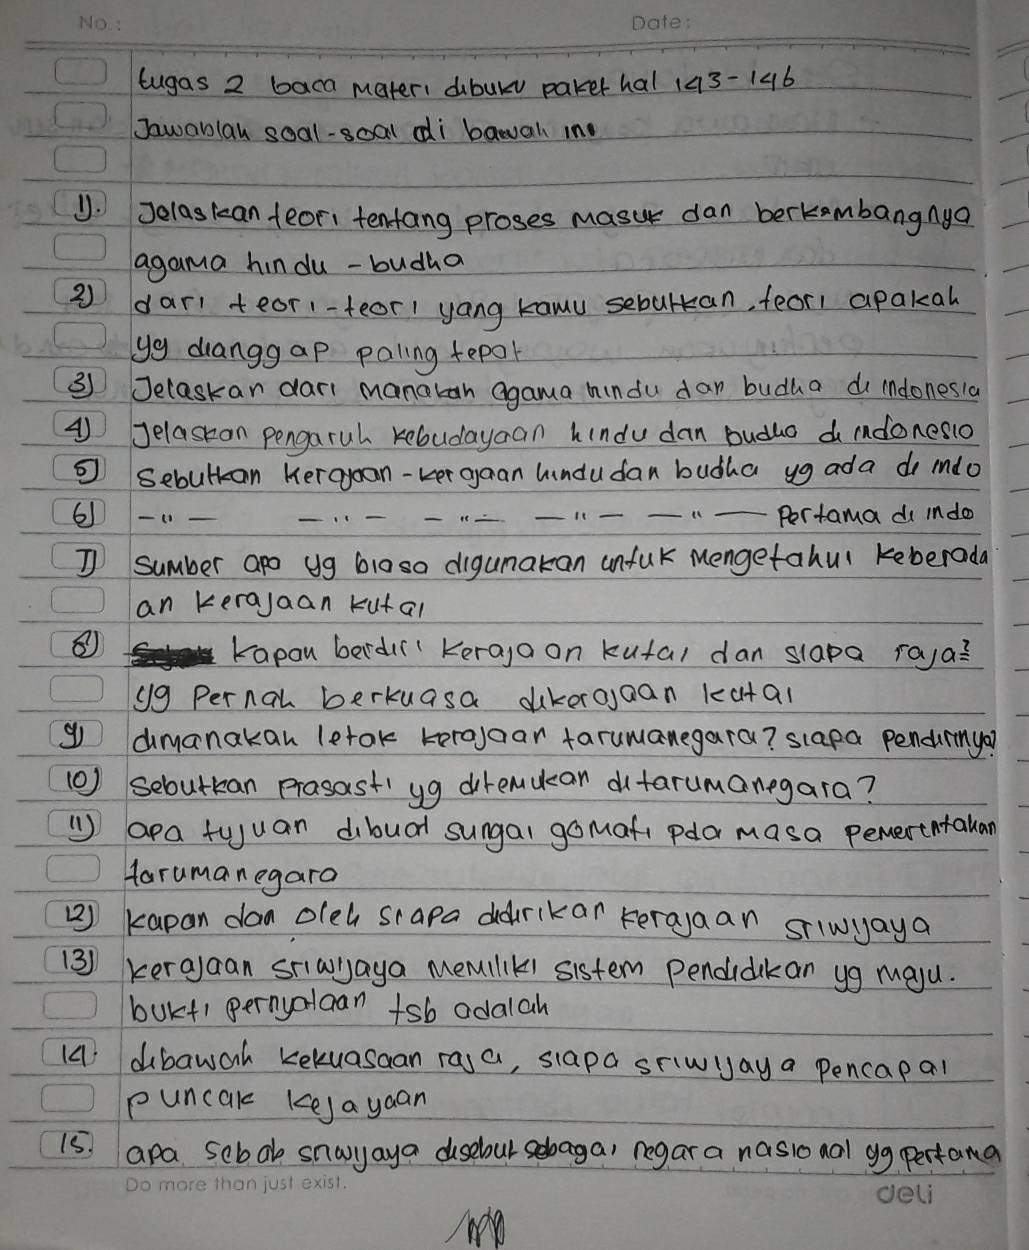 No :
Date:
tugas 2 baca materi dibuku paket hal 143-146
Jawablah soal-soal di bawah ini
1). Jelaskan teori tentang proses masuk dan berkembangnya
agama hindu - budha
2) dari teori-teori yang kamu sebutkan, teori apakah
yg dianggap paling tepat
3) Jelaskan dari manakah agama hindu dan budha di indonesia
4) Jelaskan pengaruh kebudayaan hindu dan budha di indonesia
5) Sebutkan kerajaan-kerajaan hindu dan budha yg ada di indo
6) -"- -"- -"- -"- -"- Pertama di indo
7) Sumber apa yg biasa digunakan untuk mengetahui keberada
an kerajaan kutai
8) kapan berdiri kerajaan kutai dan siapa raja2
yg Pernah berkuasa dikerajaan kutai
9) dimanakah letak kerajaan tarumanegara? siapa pendirinya?
10) Sebutkan Prasasti yg ditemukan di tarumanegara?
11) apa tujuan dibuat sungai gomati pda masa pemerintahan
tarumanegara
12) kapan dan oleh siapa didirikan kerajaan sriwijaya
13) kerajaan sriwijaya memiliki sistem pendidikan yg maju.
bukti pernyataan tsb adalah
14. dibawah kekuasaan raja, siapa sriwijaya pencapai
puncak kejayaan
15. apa sebab sriwijaya disebut sebagai negara nasional yg pertama
Do more than just exist.
deli